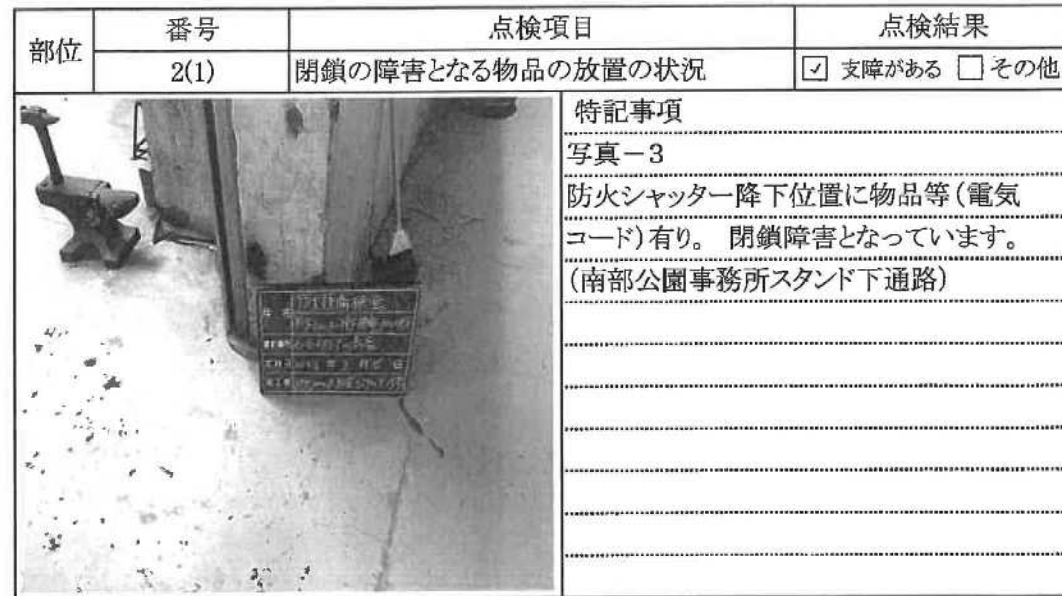 部位
番号
点検項目
点検結果
2(1)
閉鎖の障害となる物品の放置の状況
☑ 支障がある □ その他
特記事項
写真－3
防火シャッター降下位置に物品等(電気
コード)有り。 閉鎖障害となっています。
(南部公園事務所スタンド下通路)